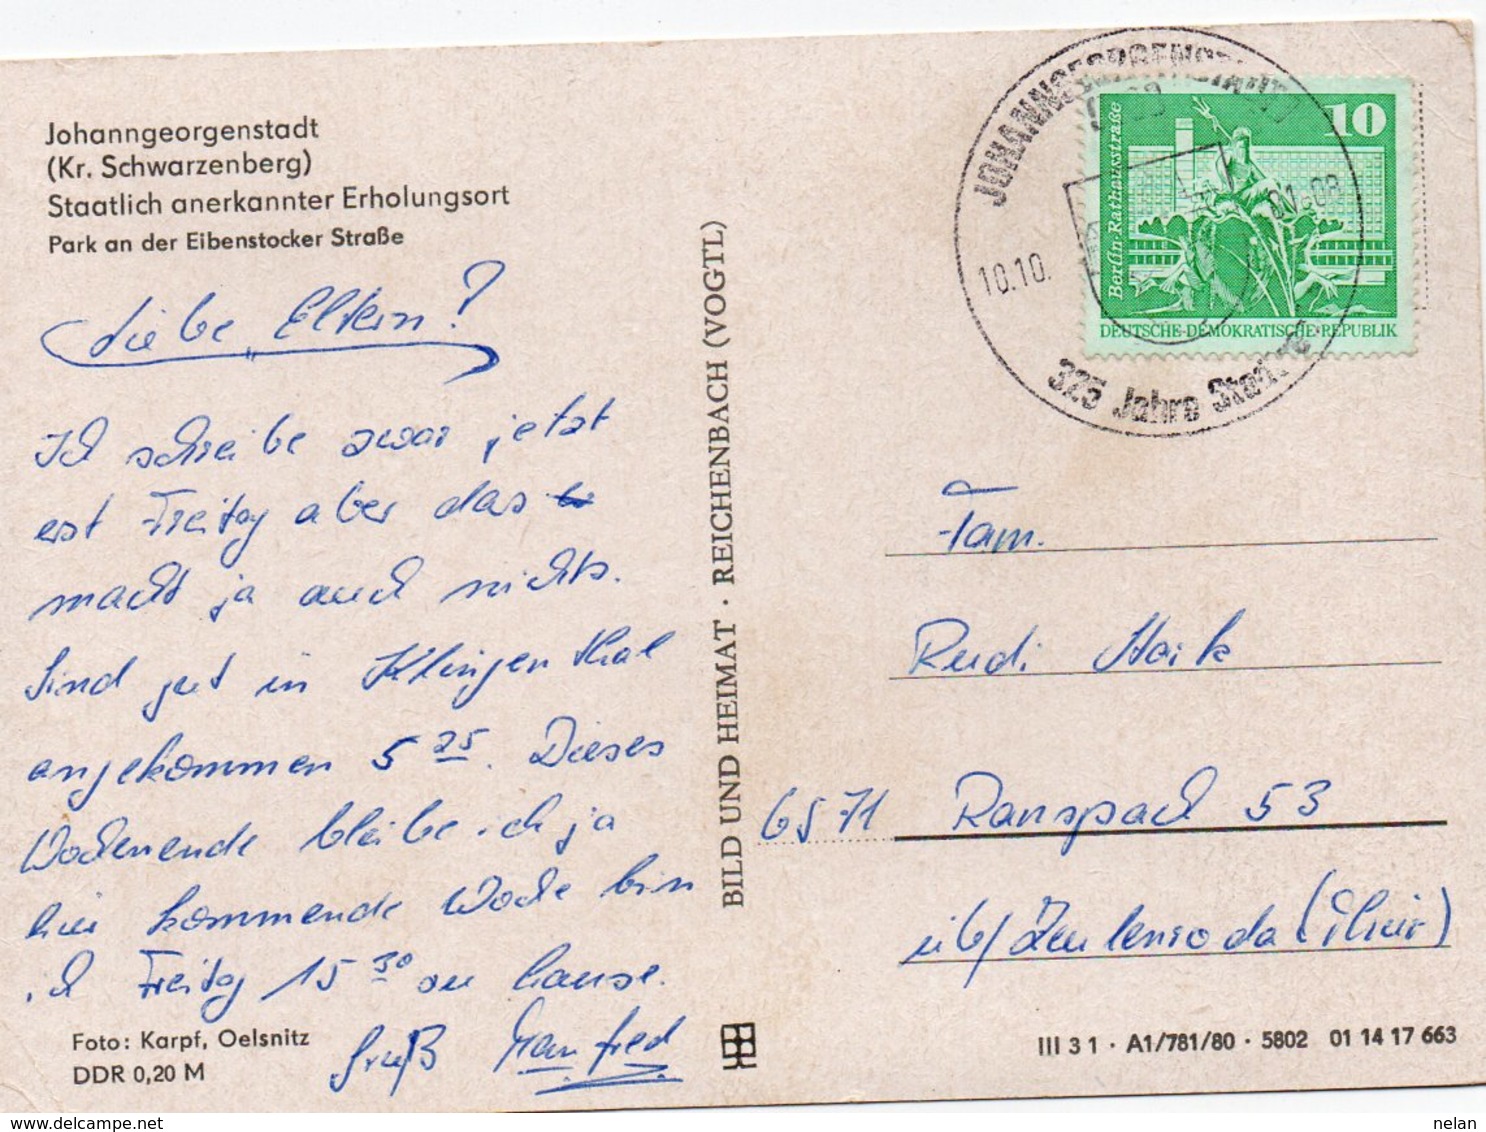 Johanngeorgenstadt
(Kr. Schwarzenberg)
Staatlich anerkannter Erholungsort
Park an der Eibenstocker Straße
Liebe Eltern!
Ich schreibe zwar jetzt
erst Freitag aber das
macht ja auch nichts.
Sind gut in Klingenthal
angekommen 5 25. Dieses
Wochenende bleibe ich ja
hier kommende Woche bin
ich Freitag 15 30 zu hause.
Gruß Manfred
Foto: Karpf, Oelsnitz
DDR 0,20 M
BILD UND HEIMAT · REICHENBACH (VOGTL)
JOHANNGEORGENSTADT
10.10.
81-08
325 Jahre
10
Berlin·Rathausstraße
DEUTSCHE·DEMOKRATISCHE·REPUBLIK
Fam.
Rudi
6571 Ranspach 53
üb/Zeulenroda
III 3 1 · A1/781/80 · 5802 01 14 17 663
www.delcampe.net
nelan